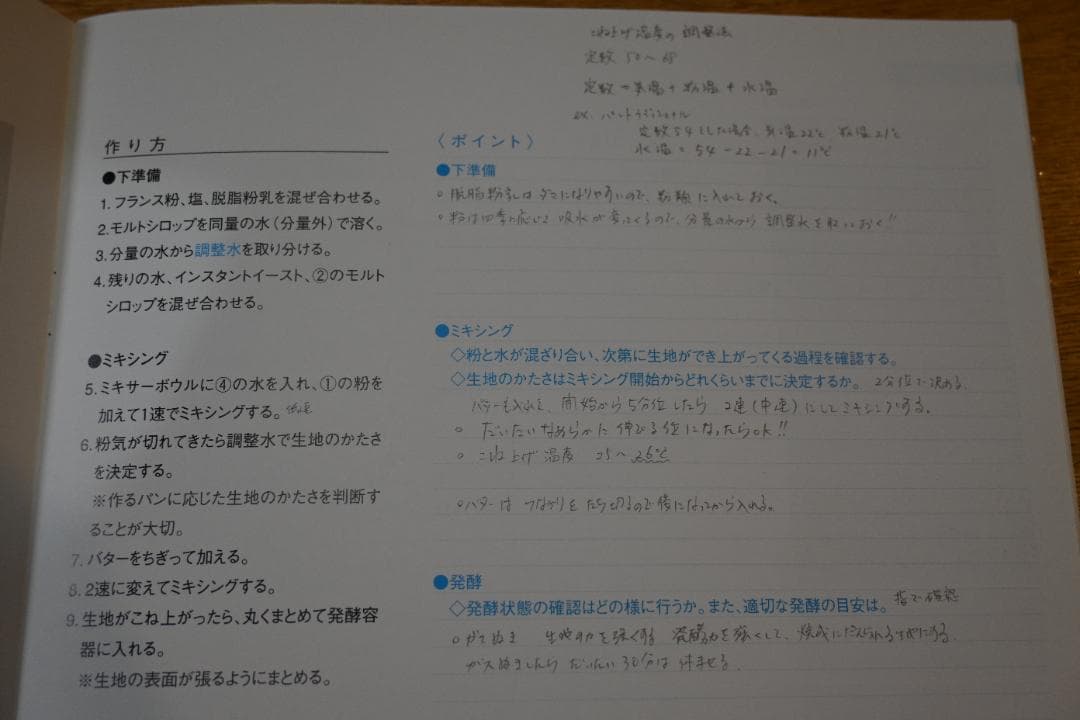 こね上げ温度の調整法
定数 50~
定数 = 気温 + 粉温 + 水温
ex. パントラディショナル
定数54とした場合、気温22℃ 粉温21℃
水温 = 54 - 22 - 21 = 11℃
作り方
●下準備
1. フランス粉、塩、脱脂粉乳を混ぜ合わせる。
2. モルトシロップを同量の水(分量外)で溶く。
3. 分量の水から調整水を取り分ける。
4. 残りの水、インスタントイースト、②のモルト
シロップを混ぜ合わせる。
●ミキシング
5. ミキサーボウルに④の水を入れ、①の粉を
加えて1速でミキシングする。低速
6. 粉気が切れてきたら調整水で生地のかたさ
を決定する。
※作るパンに応じた生地のかたさを判断す
ることが大切。
7. バターをちぎって加える。
8. 2速に変えてミキシングする。
9. 生地がこね上がったら、丸くまとめて発酵容
器に入れる。
※生地の表面が張るようにまとめる。
〈ポイント〉
●下準備
○脱脂粉乳はダマになりやすいので、粉類に入れておく。
○粉は四季に応じて吸水が変ってくるので、分量の水から調整水を取っておく!!
●ミキシング
◇粉と水が混ざり合い、次第に生地ができ上がってくる過程を確認する。
◇生地のかたさはミキシング開始からどれくらいまでに決定するか。 2分位で決める。
バターも入れて、開始から5分位したら 2速(中速)にしてミキシングする。
○ だいたいなめらかに伸びる位になったらOK!!
○ こね上げ温度 25~26℃
○バターは つながりを たち切るので後になってから入れる。
●発酵
◇発酵状態の確認はどの様に行うか。また、適切な発酵の目安は。 指で確認
○ガスぬき 生地の力を強くする 発酵力を強くして、焼成にたえられる生地にする。
ガスぬきしたら だいたい30分は休ませる。